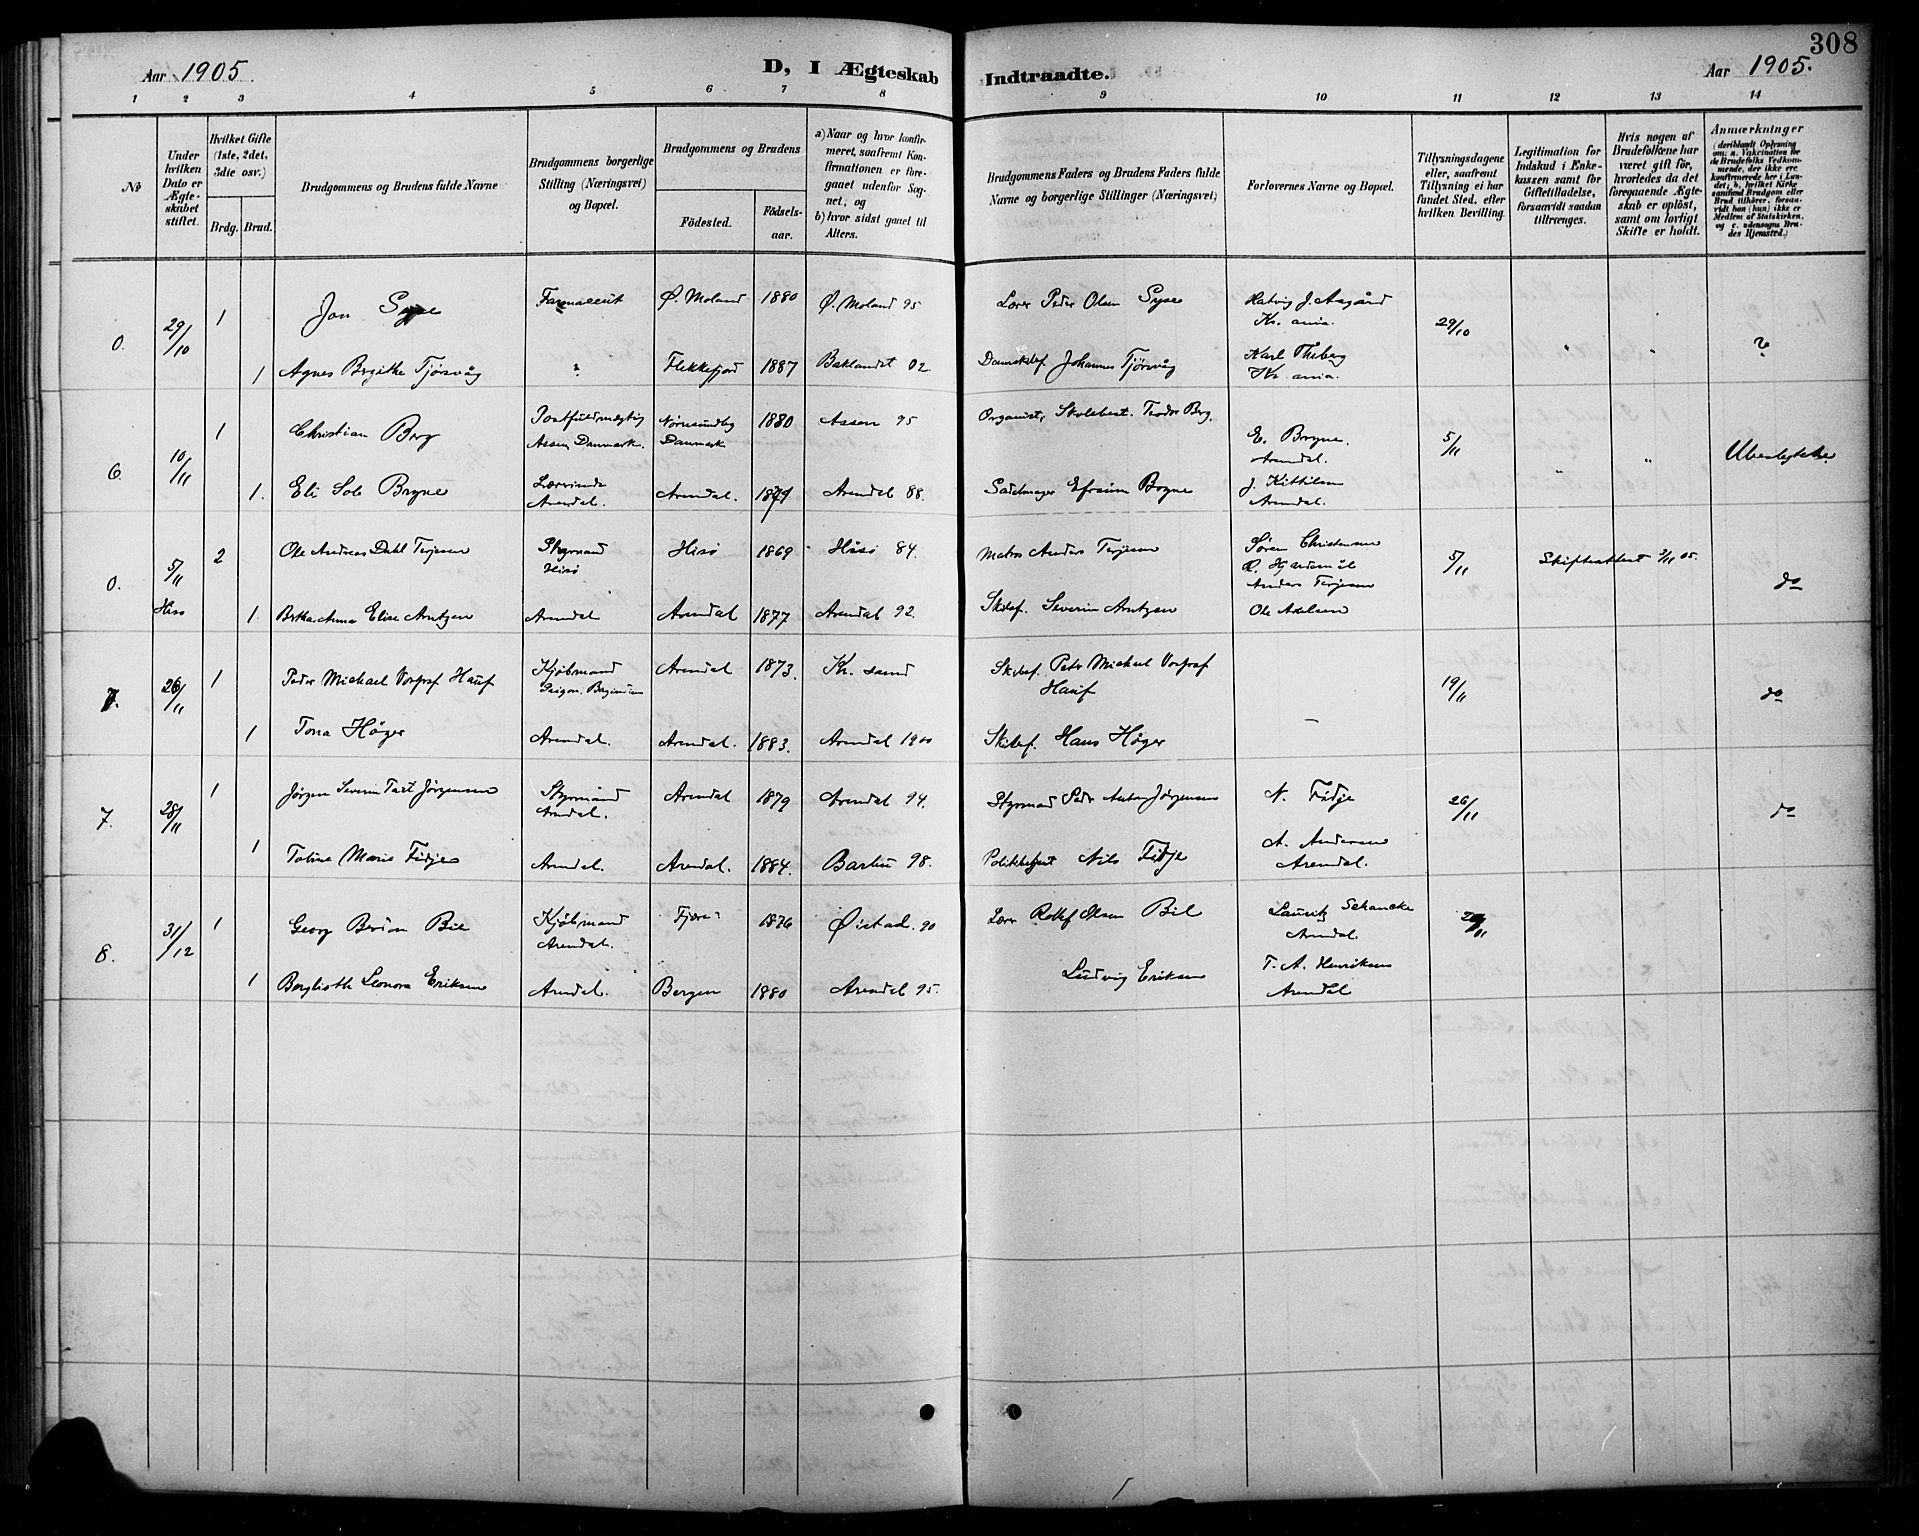 308
Aar 1905.
D, I Ægteskab
Indtraadte.
Aar 1905.
1 2 3 4 5 6 7 8 9 10 11 12 13 14
No
Under hvilken Dato er Ægteskabet stiftet.
Hvilket Gifte (1ste, 2det, 3die osv.)
Brdg. Brud.
Brudgommens og Brudens fulde Navne
Brudgommens borgerlige Stilling (Næringsvei) og Bopæl.
Brudgommens og Brudens
Fødested.
Fødselsaar.
a) Naar og hvor konfirmeret, saafremt Konfirmationen er foregaaet udenfor Sognet, og
b) hvor sidst gaaet til Alters.
Brudgommens Faders og Brudens Faders fulde Navne og borgerlige Stillinger (Næringsvei)
Forlovernes Navne og Bopæl.
Tillysningsdagene eller, saafremt Tillysning ei har fundet Sted, efter hvilken Bevilling.
Legitimation for Indskud i Enkekassen samt for Giftetilladelse, forsaavidt saadan tiltrænges.
Hvis nogen af Brudefolkene har været gift før, hvorledes da det foregaaende Ægteskab er opløst, samt om lovligt Skifte er holdt.
Anmærkninger
0. 29/10 1 Jon Syse Farmaceut Ø. Moland 1880 Ø. Moland 95 Lærer Peder Olsen Syse Hatvig J. Aagård Kr. ania. 29/10
1 Agnes Birgithe Tjørsvåg " Flekkefjord 1887 Baklandet 02 Johannes Tjörsvåg Karl Theberg Kr. ania. " "
6. 10/11 1 Christian Berg Postfuldmægtig Assen, Danmark. Nørresundby Danmark 1880 Assen 95 Organist, Skolebest. Teodor Berg. E. Bryne. Arendal. 5/11
1. Eli Sole Bryne Lærerinde Arendal. Arendal. Arendal 88. Sadelmager Efraim Bryne J. Kittilsen Arendal. " "
0. 5/11 Hisø 2 Ole Andreas Dahl Terjesen Styrmand Hisø Hisö 1869 Hisö 84. Matros Anders Terjesen Søren Christensen 5/11 Skifteattest 3/11 05. do
Anders Terjesen
1 Bertha Anna Elise Arntzen Arendal Arendal 1877 Arendal 92. Skibsf. Severin Arntzen Ole Axelsen
7. 26/11 1 Peder Michael Vorpraf Hauf Kjøbmand Arendal 1873. Kr. sand Skibsf. Peter Michael Vorpraf Hauf 19/11 do
1 Tona Høger Arendal. Arendal. 1883. Arendal 1900 Skibsf. Hans Høger –
7. 28/11 1 Jørgen Severin Tart Jörgensen Styrmand Arendal. Arendal 1879 Arendal 94. Styrmand Peder Anton Jörgensen N. Fidje 26/11 do
1 Toline Marie Fidje Arendal. Arendal. 1884. Barbu 98. Politibetjent Nils Fidje A. Andersen Arendal.
8. 31/12 1 Georg Berson Bie Kjøbmand Arendal. Fjære 1876 Øistad. 90 Lærer Rolf Olsen Bie Lauritz Schancke Arendal.
1 Berglioth Leonora Eriksen Arendal. Bergen 1880 Arendal 95. Ludvig Eriksen T. A. Henriksen Arendal